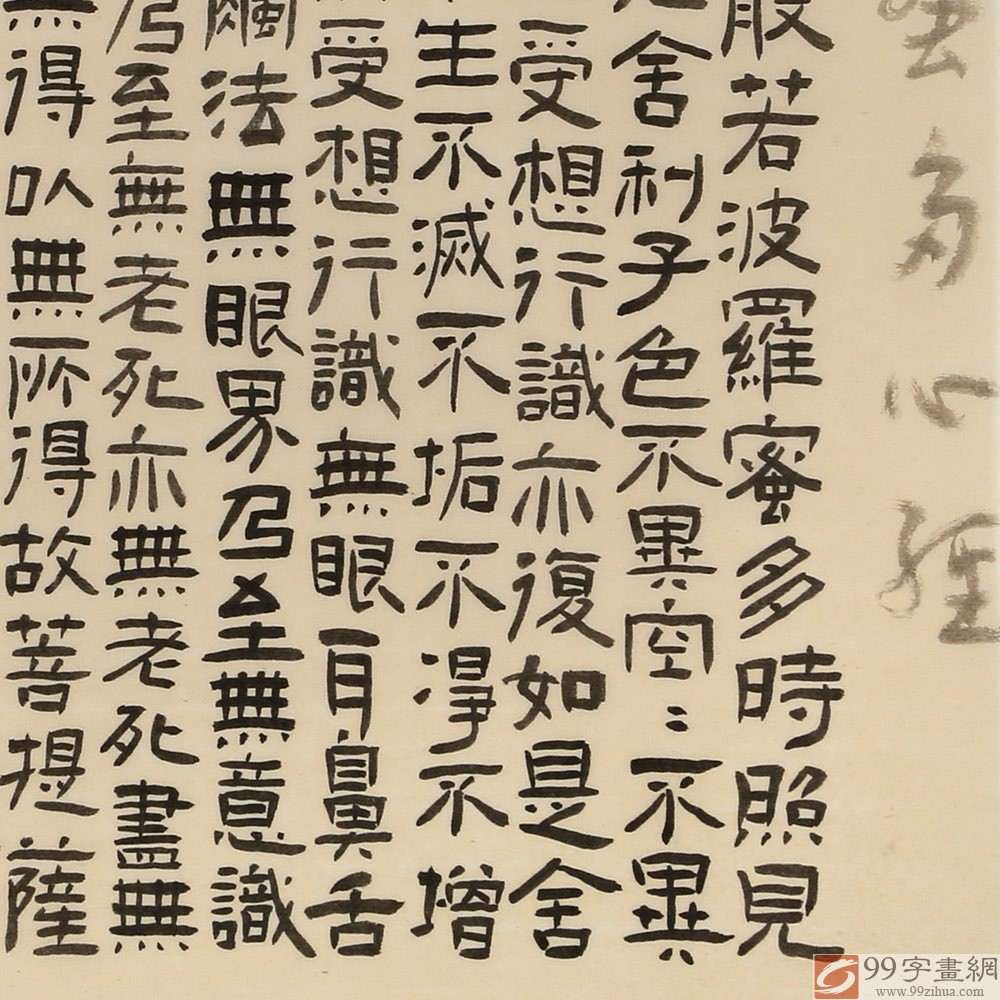 多心經
般若波羅蜜多時照見
舍利子色不異空〻不異
受想行識亦復如是舍
生不滅不垢不淨不增
受想行識無眼耳鼻舌
法無眼界乃至無意識
乃至無老死亦無老死盡無
無得以無所得故菩提薩
99字畫網
www.99zihua.com